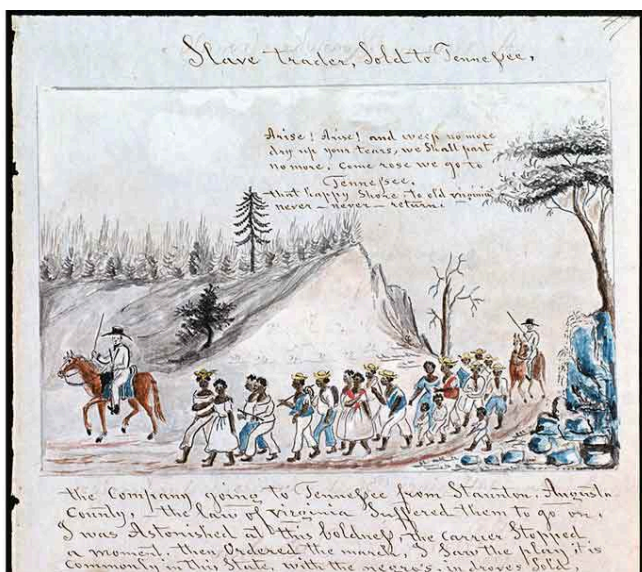 Slave trader, Sold to Tennessee,
Arise! Arise! and weep no more
dry up your tears, we Shall part
no more. Come rose we go to
Tennessee,
that happy Shore, to old virginia
never — never — return.
the Company going to Tennessee from Staunton, Augusta
County, — the law of virginia Suffered them to go on,
I was Astonished at this boldness, the carrier Stopped
a moment, then Ordered the march, I Saw the play it is
Commonly in this State, with the negro's in droves Sold,